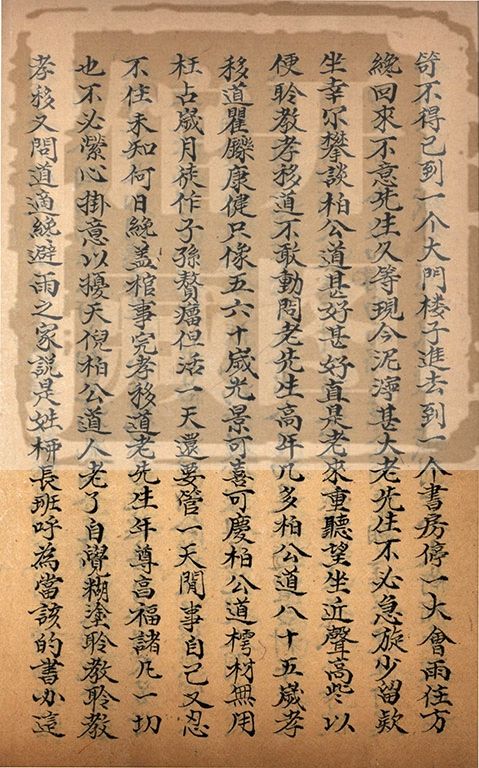 笴不得已到一个大門楼子進去到一个書房停一大會雨住方
纔回來不意先生久等現今泥濘甚大老先生不必急旋少留欵
坐幸尓攀談柏公道甚好甚好直是老來重聽望坐近聲高些以
便聆教孝移道不敢動問老先生高年几多柏公道八十五歲孝
移道矍鑠康健只像五六十歲光景可喜可慶柏公道樗材無用
枉占歲月徒作子孫贅瘤但活一天還要管一天閒事自己又忍
不住未知何日纔盖棺事完孝移道老先生年尊高福諸凡一切
也不必縈心掛意以擾天倪柏公道人老了自覺糊塗聆教聆教
孝移又問道適纔避雨之家説是姓柳長班呼為當該的書办這